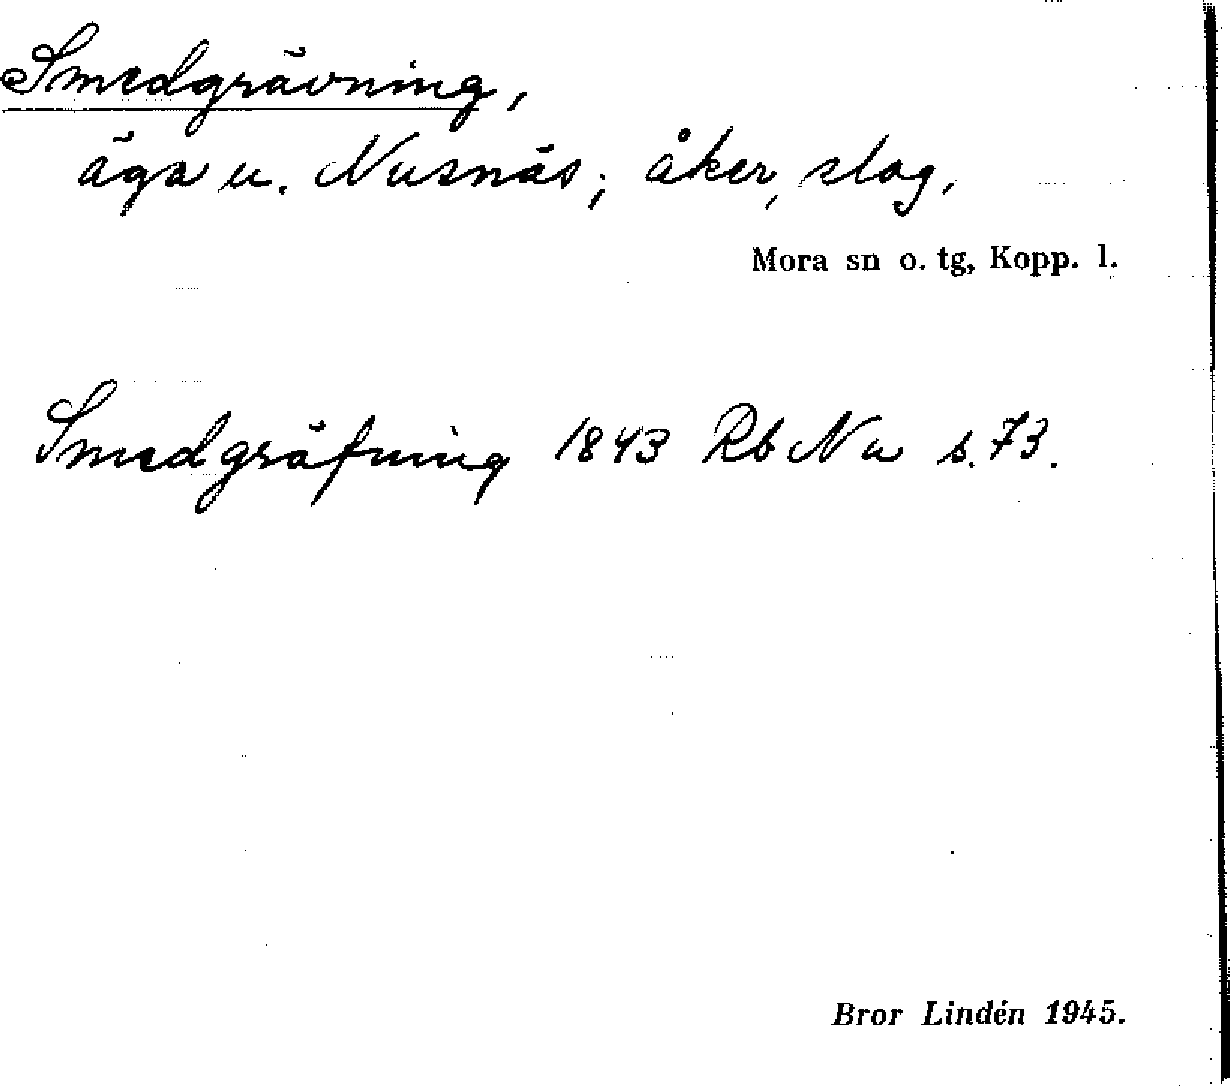 Smedgrävning,
äga u. Nusnäs; åker, slog,
Mora sn o. tg, Kopp. l.
Smedgräfning 1843 Rb Nu s. 73.
Bror Lindén 1945.